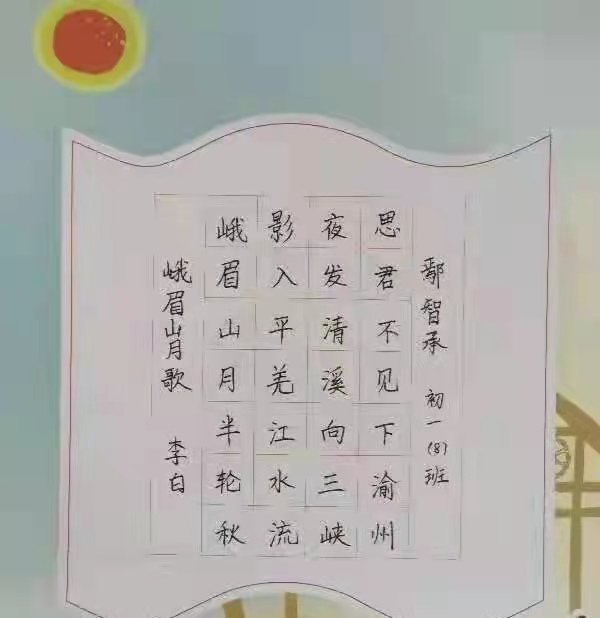 峨眉山月歌 李白
峨眉山月半轮秋
影入平羌江水流
夜发清溪向三峡
思君不见下渝州
鄢智承 初一(8)班